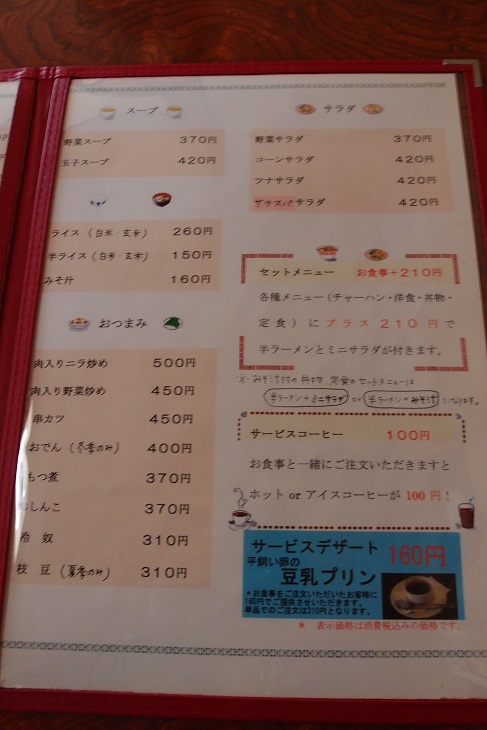 スープ
野菜スープ 370円
玉子スープ 420円
ライス（白米・玄米） 260円
半ライス（白米・玄米） 150円
みそ汁 160円
おつまみ
肉入りニラ炒め 500円
肉入り野菜炒め 450円
串カツ 450円
おでん（冬季のみ） 400円
もつ煮 370円
おしんこ 370円
冷奴 310円
枝豆（夏季のみ） 310円
サラダ
野菜サラダ 370円
コーンサラダ 420円
ツナサラダ 420円
サラダ 420円
セットメニュー お食事＋210円
各種メニュー（チャーハン・洋食・丼物・
定食）にプラス210円で
半ラーメンとミニサラダが付きます。
※みそ汁付の丼物、定食のセットメニューは
半ラーメン＋ミニサラダ か 半ラーメン＋みそ汁 になります。
サービスコーヒー 100円
お食事と一緒にご注文いただきますと
ホット or アイスコーヒーが 100円！
サービスデザート 160円
平飼い卵の
豆乳プリン
＊お食事をご注文いただいたお客様に
160円でご提供させいただきます。
単品でのご注文は310円となります。
＊ 表示価格は消費税込みの価格です。